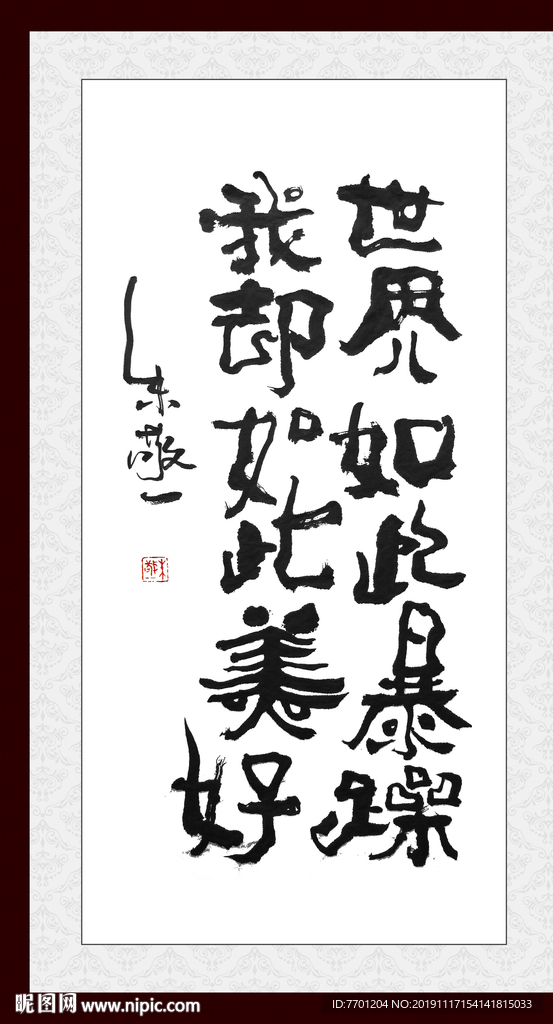 世界如此暴躁
我却如此美好
朱敬一
昵图网 www.nipic.com
ID:7701204 NO:20191117154141815033